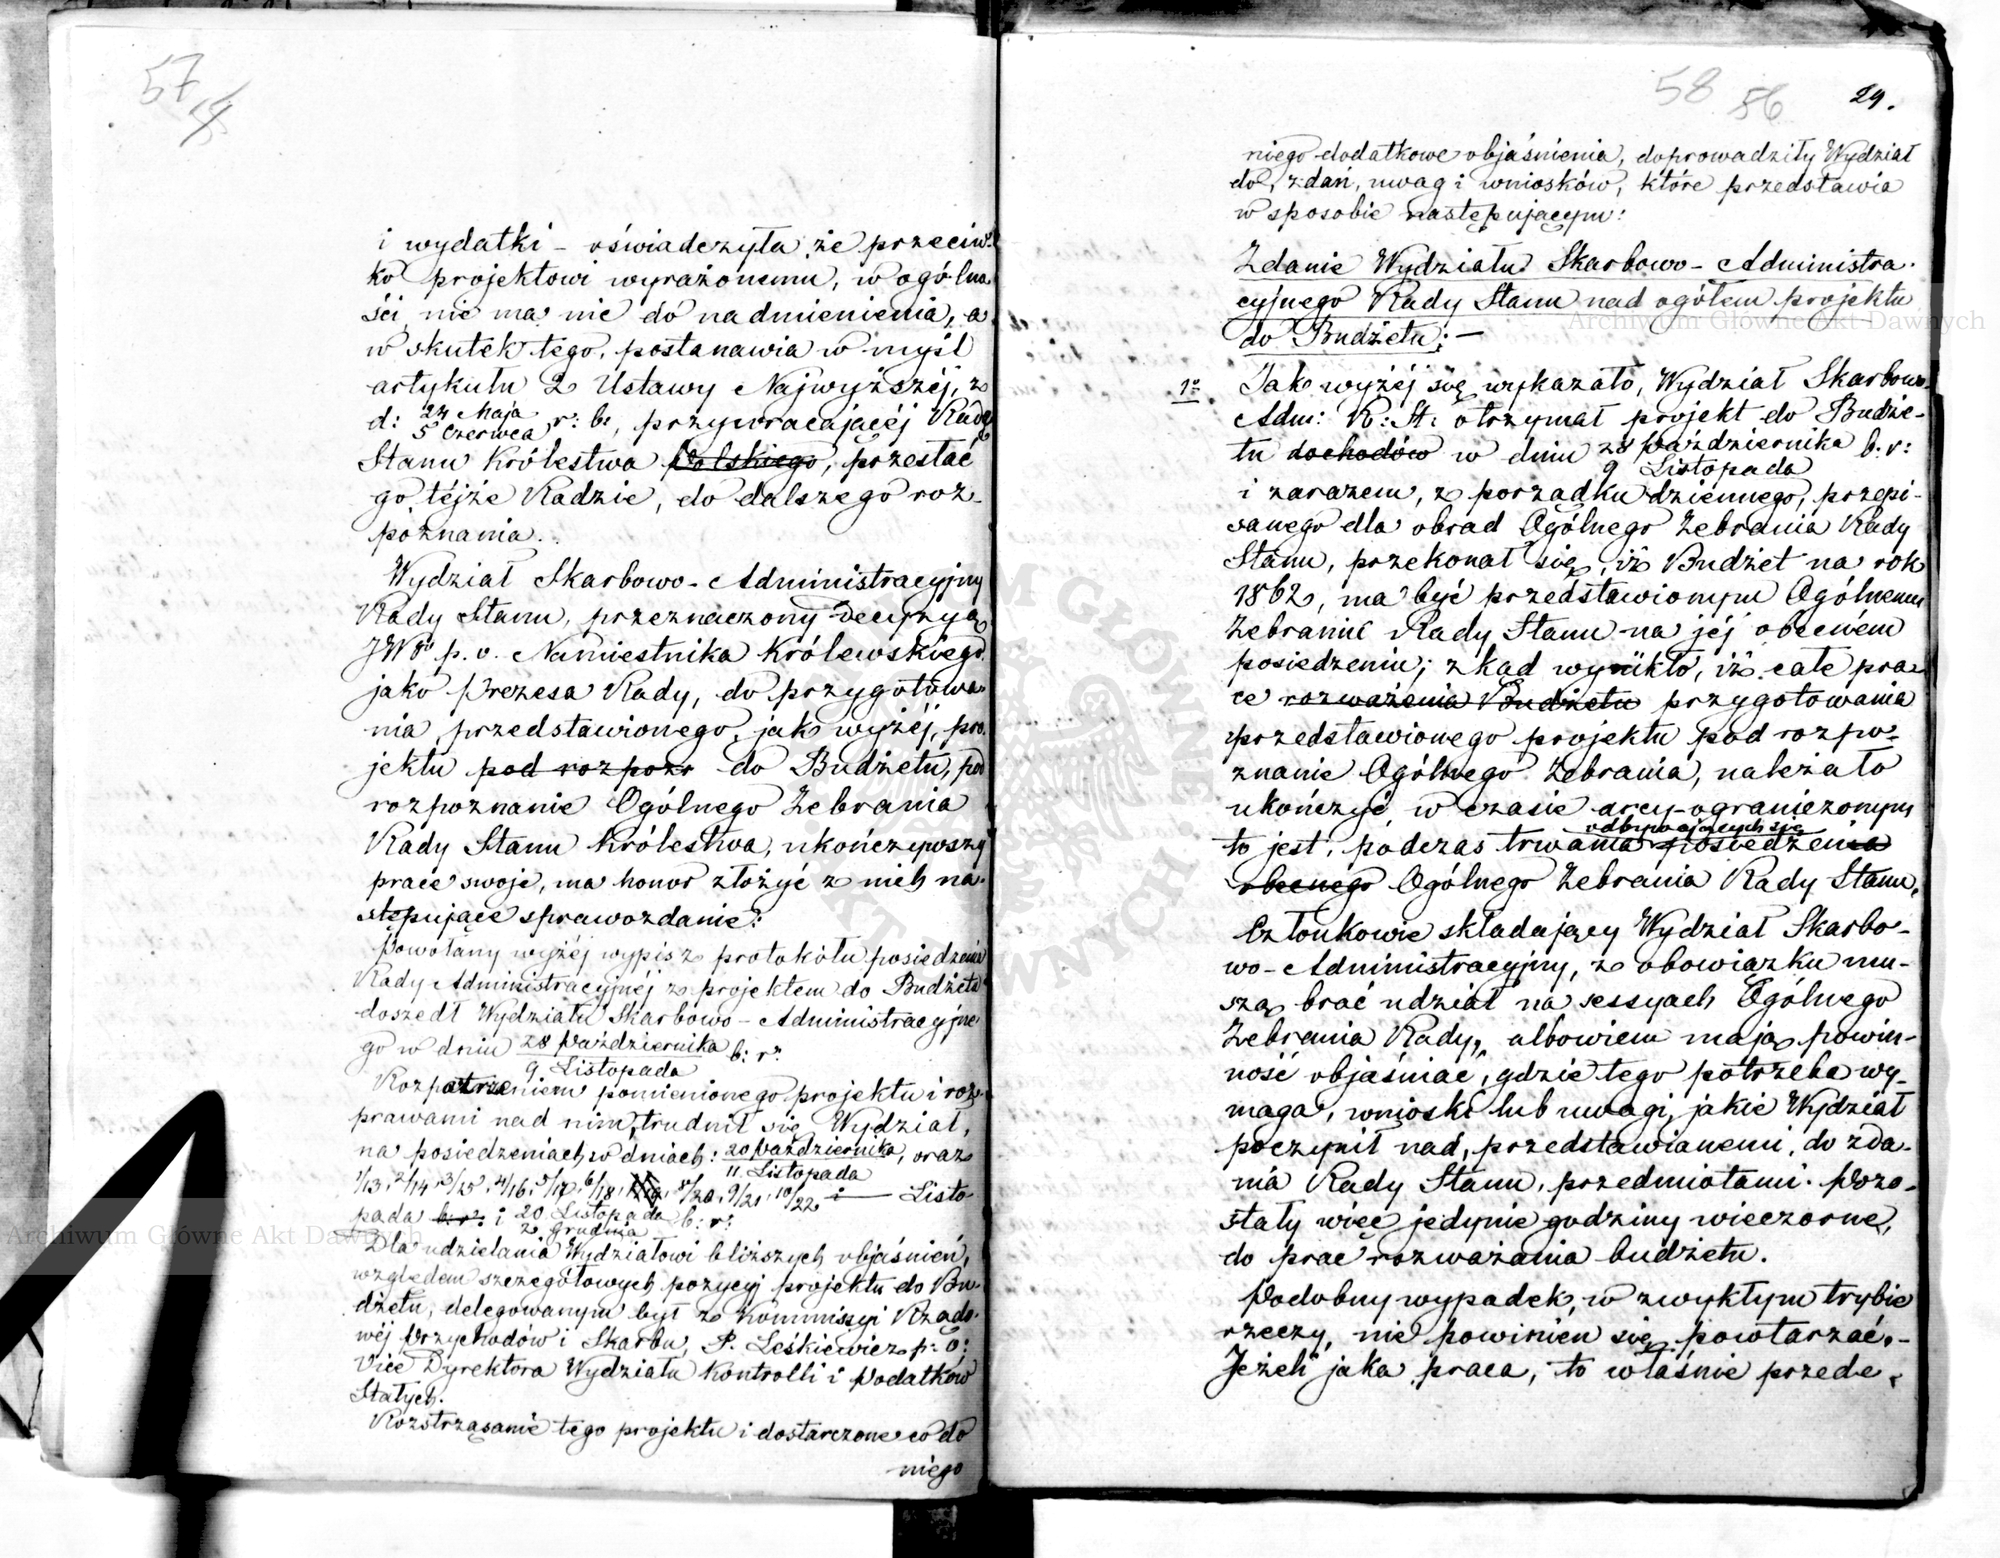 57
i wydatki – oświadczyła, że przeciw-
ko projektowi wyrażonemu, w ogólno
ści nie ma nic do nadmienienia, a
w skutek tego, postanawia w myśl
artykułu 2 Ustawy Najwyższéj, z
d: 24 Maja / 5 Czerwca r: b:, przywracającéj Radę
Stanu Królestwa Polskiego, przesłać
go téjże Radzie, do dalszego roz-
poznania.
Wydział Skarbowo-Administracyjny
Rady Stanu, przeznaczony decyzyą
JWo p. o. Namiestnika Królewskiego
jako Prezesa Rady, do przygotowa-
nia, przedstawionego, jak wyżéj, pro-
jektu pod rozpozn do Budżetu, pod
rozpoznanie Ogólnego Zebrania
Rady Stanu Królestwa, ukończywszy
prace swoje, ma honor złożyć z nich na-
stępujące sprawozdanie:
Powołany wyżéj wypis z protokółu posiedzenia
Rady Administracyjnéj z projektem do Budżetu
doszedł Wydziału Skarbowo-Administracyjne-
go w dniu 28 Października / 9 Listopada b: r:
Rozpatrzeniem pomienionego projektu i roz-
prawami nad nim, trudnił się Wydział,
na posiedzeniach w dniach: 20 Października / 11 Listopada, oraz
1/13, 2/14, 3/15, 4/16, 5/17, 6/18, 8/20, 9/21, 10/22 i — Listo-
pada b: r: i 20 Listopada / 2 Grudnia b: r:
Dla udzielania Wydziałowi bliższych objaśnień,
względem szczegółowych pozycyj projektu do Bu-
dżetu, delegowanym był z Kommissyi Rządo-
wéj Przychodów i Skarbu, P. Leśkiewicz p: o:
Vice Dyrektora Wydziału Kontrolli i Podatków
Stałych.
Rozstrząsanie tego projektu i dostarczone co do
niego
58 56 29.
niego dodatkowe objaśnienia, doprowadziły Wydział
do zdań, uwag i wniosków, które przedstawia
w sposobie następującym:
Zdanie Wydziału Skarbowo-Administra-
cyjnego Rady Stanu nad ogółem projektu
do Budżetu: —
1o Jak wyżéj się wykazało, Wydział Skarbowo
Adm: R: St: otrzymał projekt do Budże-
tu dochodów w dniu 28 Października / 9 Listopada b: r:
i zarazem, z porządku dziennego, przepi-
sanego dla obrad Ogólnego Zebrania Rady
Stanu, przekonał się, iż Budżet na rok
1862, ma być przedstawionym Ogólnemu
Zebraniu Rady Stanu na jéj obecném
posiedzeniu; zkąd wynikło, iż całe pra-
ce rozważenia Budżetu przygotowania
przedstawionego projektu pod rozpo-
znanie Ogólnego Zebrania, należało
ukończyć w czasie arcy-ograniczonym
odbywających się
to jest, podczas trwania posiedzenia
obecnego Ogólnego Zebrania Rady Stanu.
Członkowie składający Wydział Skarbo-
wo-Administracyjny, z obowiązku mu-
szą brać udział na sessyach Ogólnego
Zebrania Rady, albowiem mają powin-
ność objaśniać, gdzie tego potrzeba wy-
maga, wnioski lub uwagi, jakie Wydział
poczynił nad, przedstawianemi, do zda-
nia Rady Stanu, przedmiotami. Pozo-
stały więc jedynie godziny wieczorne,
do prac rozważania budżetu.
Podobny wypadek, w zwykłym trybie
rzeczy, nie powinien się powtarzać. –
Jeżeli jaka praca, to właśnie przede
Archiwum Główne Akt Dawnych
Archiwum Główne Akt Dawnych